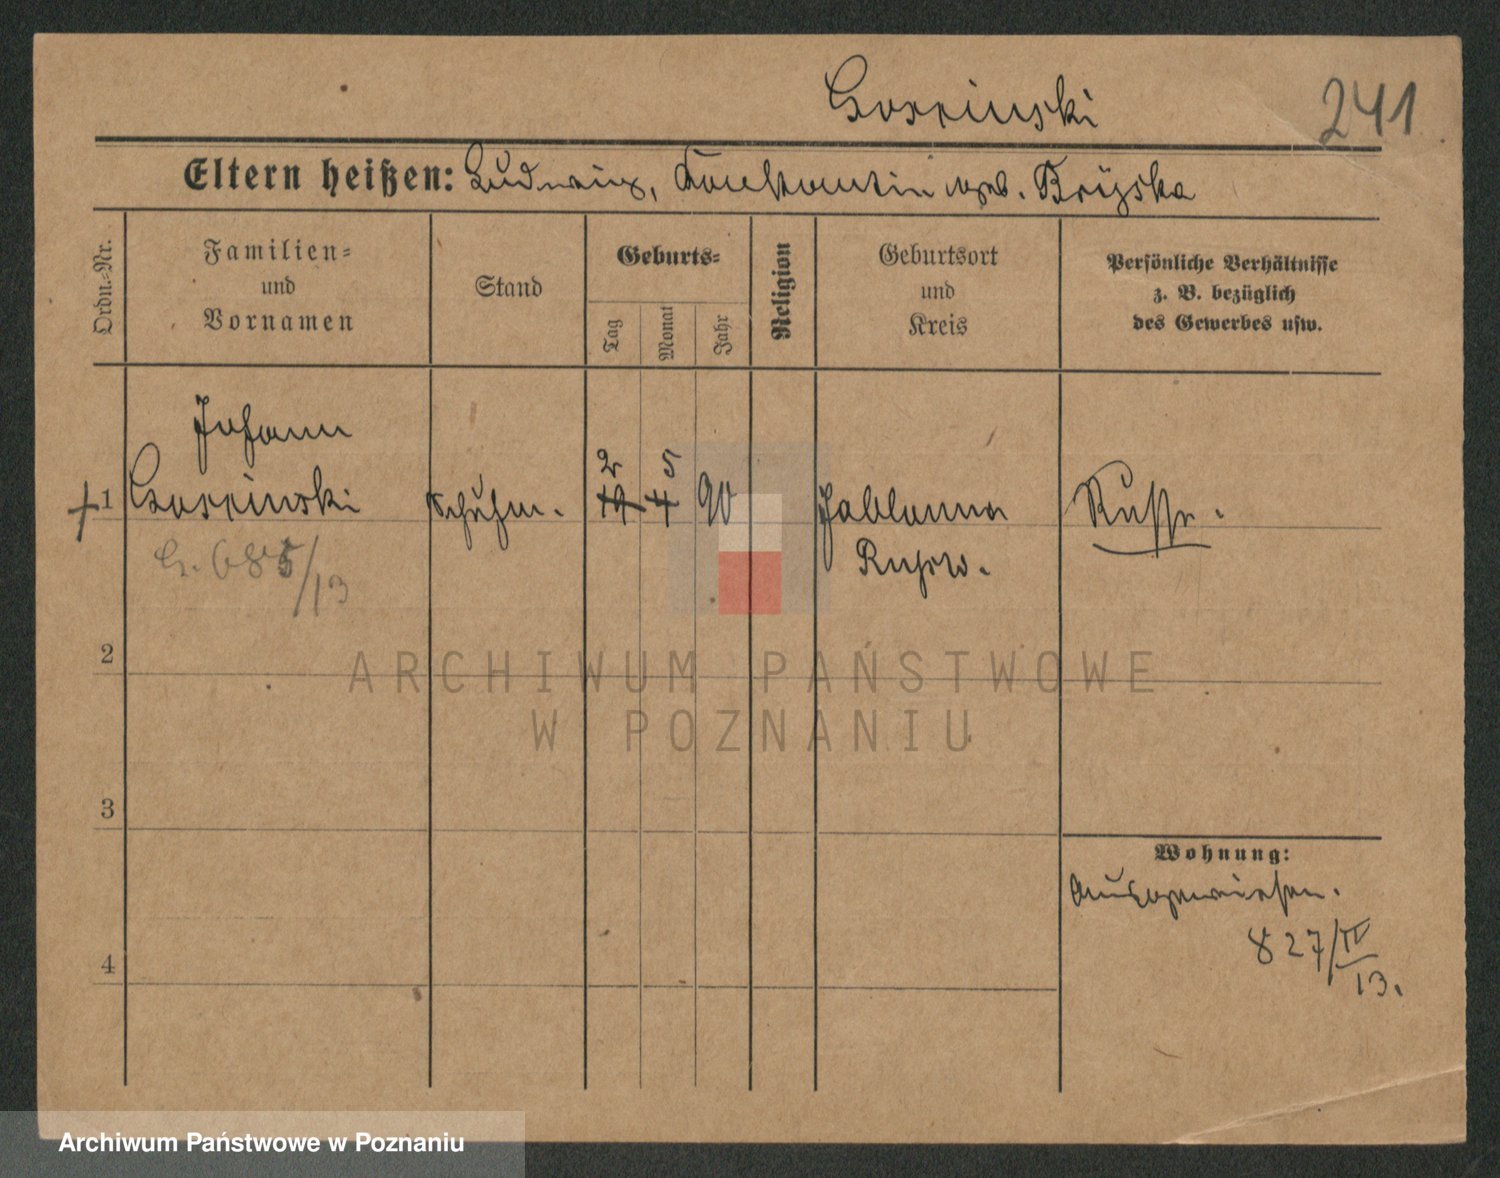 241
Eltern heißen: Ludwig,
Ordn.-Nr.
Familien-
und
Vornamen
Stand
Geburts-
Tag
Monat
Jahr
Religion
Geburtsort
und
Kreis
Persönliche Verhältnisse
z. B. bezüglich
des Gewerbes usw.
Johann
1
2 5
4 90
Jablonna
Russe.
685/13
2
3
4
Wohnung:
Ausgewiesen.
827/IV
13.
ARCHIWUM PAŃSTWOWE
W POZNANIU
Archiwum Państwowe w Poznaniu